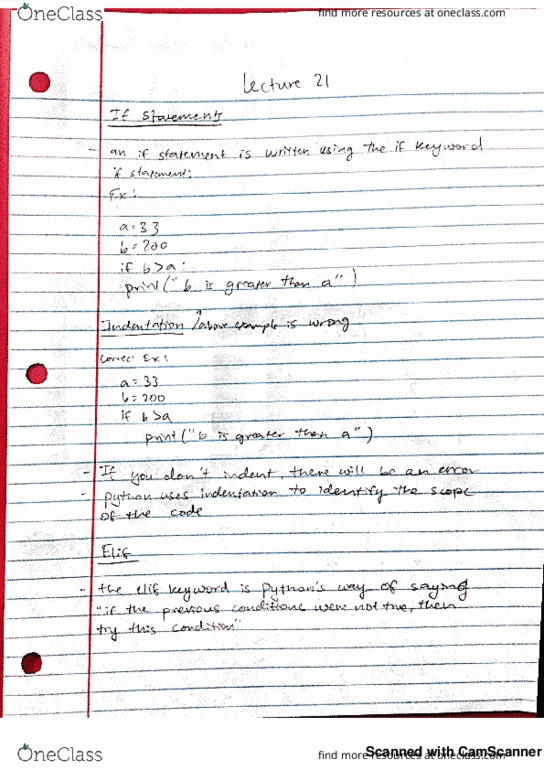 OneClass
find more resources at oneclass.com
Lecture 21
If Statements
- an if statement is written using the if keyword
if statement:
Ex:
a=33
b=200
if b>a:
print("b is greater than a")
Indentation /above example is wrong
Correc' Ex:
a=33
b=200
if b>a
print("b is greater than a")
- If you don't indent, there will be an error
- python uses indentation to identify the scope
of the code
Elif
- the elif keyword is python's way of saying
"if the previous conditions were not true, then
try this condition"
OneClass
find more resources at oneclass.com
Scanned with CamScanner